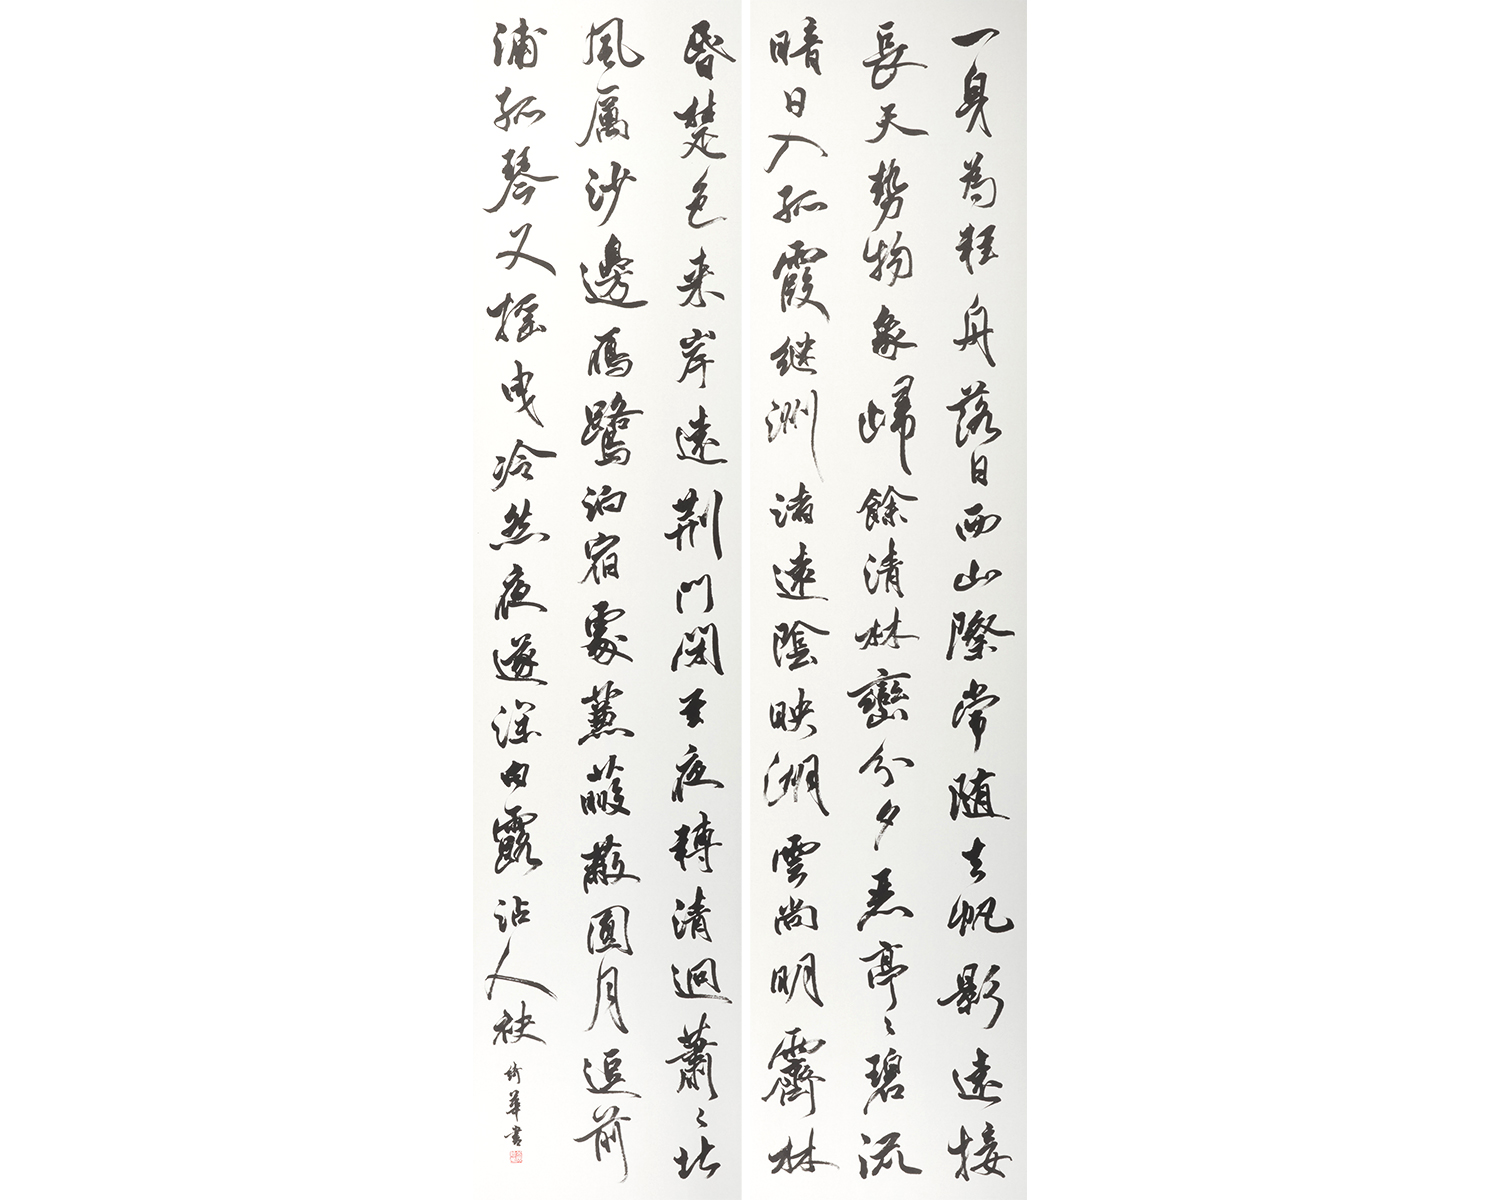 一身為輕舟落日西山際常隨去帆影遠接
長天勢物象歸餘清林巒分夕麗亭〻碧流
暗日入孤霞继洲渚遠陰映湖雲尚明霽林
昏楚色来岸遠荊門閉至夜轉清迥蕭〻北
風厲沙邊鴈鷺泊宿處蒹葭蔽圓月逗前
浦孤琴又搖曳泠然夜遂深白露沾人袂
綺華書